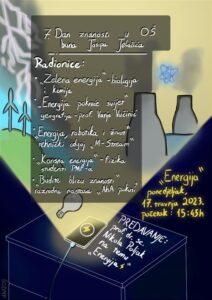 7. Dan znanosti u OŠ
bana Josipa Jelačića
Radionice:
- „Zelena energija" - biologija
i kemija
- „Energija pokreće svijet"
geografija - prof. Vanja Vučinić
- „Energija, robotika i
tehnički odgoj „M-Stream"
- „Korisna energija" - fizika
studenti PMF-a
- „Budite blizu znanosti"
razredna nastava „AhA pokusi"
„Energija"
ponedjeljak,
17. travnja 2023.
početak: 15:45h
PREDAVANJE:
prof. dr. sc.
Nikola Poljak
na temu
„Energija"